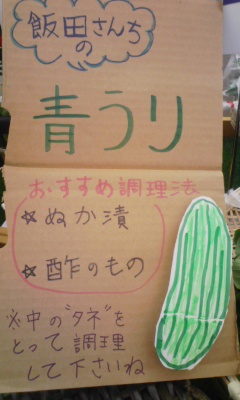 飯田さんち
の
青うり
おすすめ調理法
☆ぬか漬
☆酢のもの
※中の"タネ"を
とって調理
して下さいね